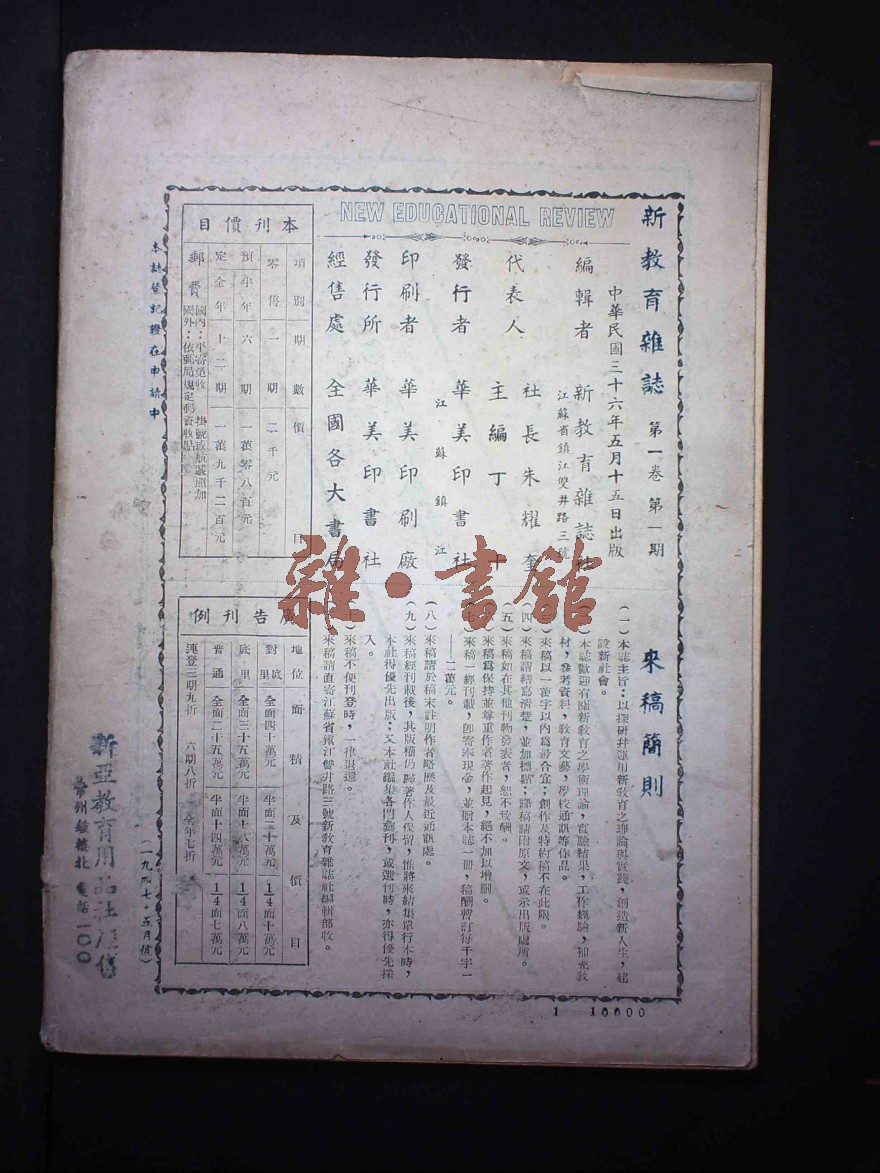 新教育雜誌 第一卷 第一期
中華民國三十六年五月十五日出版
編輯者 新教育雜誌社
江蘇省鎮江雙井路三號
代表人 社長朱耀奎
主編丁
發行者 華美印書社
江蘇鎮江
印刷者 華美印刷廠
發行所 華美印書社
經售處 全國各大書局
NEW EDUCATIONAL REVIEW
本刊價目
項別 期數 價目
零售 一期 二千元
預定 半年 六期 一萬零八百元
全年 十二期 一萬九千二百元
郵費 國內:平寄免收 掛號或航遞照加
國外:依郵局規定郵資收足
來稿簡則
(一)本誌主旨:以探研并運用新教育之理論與實踐,創造新人生,建
設新社會。
本誌歡迎有關新教育之學術理論,實驗結果,工作經驗,補充教
材,參考資料,教育文藝,學校通訊等作品。
來稿以一萬字以內為最合宜;創作及特約稿不在此限。
(四)來稿請繕寫清楚,並加標點;譯稿請附原文,或示出版處所。
(五)來稿如在其他刊物發表者,恕不致酬。
來稿為保持並尊重作者著作起見,絕不加以增刪。
(七)來稿一經刊載,即寄奉現金,並贈本誌一冊,稿酬暫訂每千字一
——二萬元。
(八)來稿請於稿末註明作者略歷及最近通訊處。
(九)來稿經刊載後,其版權仍歸著作人保留,惟將來結集單行本時,
本社得優先出版;又本社編集各門叢刊,或選刊時,亦得優先採
入。
來稿不便刊登時,一律退還。
來稿請直寄江蘇省鎮江雙井路三號新教育雜誌社編輯部收。
廣告刊例
地位 面積及價目
對底里 全面四十萬元 半面二十萬元 1/4面十萬元
底里 全面三十五萬元 半面十八萬元 1/4面八萬元
普通 全面二十五萬元 半面十四萬元 1/4面七萬元
連登三期九折 六期八折 全年七折
本誌登記證在申請中
(一九四七·五月號)
1 10000
新亞教育用品社經售
常州鐘樓北 電話一〇〇
雜·書館